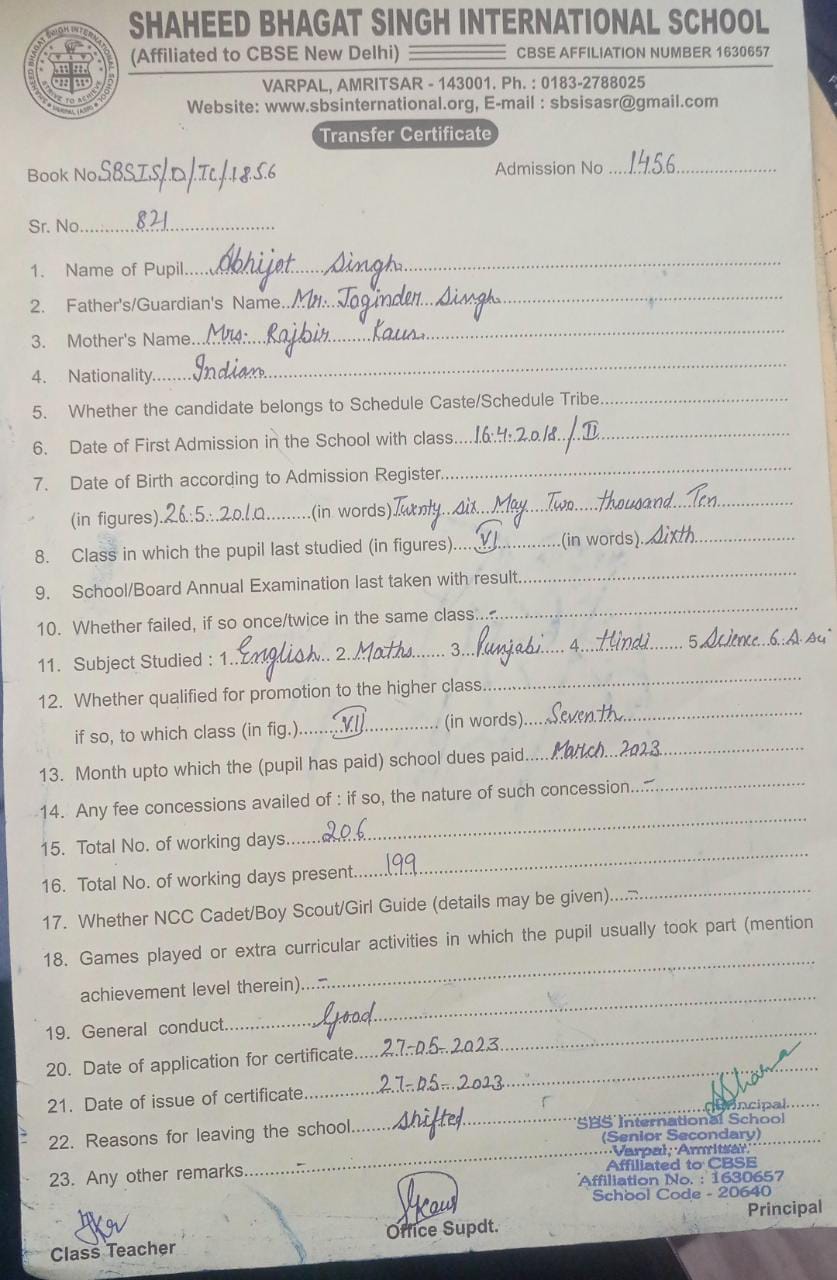 SHAHEED BHAGAT SINGH INTERNATIONAL SCHOOL
(Affiliated to CBSE New Delhi) CBSE AFFILIATION NUMBER 1630657
VARPAL, AMRITSAR - 143001. Ph. : 0183-2788025
Website: www.sbsinternational.org, E-mail : sbsisasr@gmail.com
Transfer Certificate
Book No SBSIS/D/TC/1856 Admission No 1456
Sr. No. 821
1. Name of Pupil Abhijot Singh
2. Father's/Guardian's Name Mr. Joginder Singh
3. Mother's Name Mrs. Rajbir Kaur
4. Nationality Indian
5. Whether the candidate belongs to Schedule Caste/Schedule Tribe
6. Date of First Admission in the School with class 16.4.2018/II
7. Date of Birth according to Admission Register
(in figures) 26.5.2010 (in words) Twenty six May Two thousand Ten
8. Class in which the pupil last studied (in figures) VI (in words) Sixth
9. School/Board Annual Examination last taken with result
10. Whether failed, if so once/twice in the same class -
11. Subject Studied : 1. English 2. Maths 3. Punjabi 4. Hindi 5 Science 6. S.Sci
12. Whether qualified for promotion to the higher class
if so, to which class (in fig.) VII (in words) Seventh
13. Month upto which the (pupil has paid) school dues paid March 2023
14. Any fee concessions availed of : if so, the nature of such concession -
15. Total No. of working days 206
16. Total No. of working days present 199
17. Whether NCC Cadet/Boy Scout/Girl Guide (details may be given) -
18. Games played or extra curricular activities in which the pupil usually took part (mention
achievement level therein) -
19. General conduct Good
20. Date of application for certificate 27-05-2023
21. Date of issue of certificate 27-05-2023
22. Reasons for leaving the school shifted
23. Any other remarks -
Principal
SBS International School
(Senior Secondary)
Varpal, Amritsar.
Affiliated to CBSE
Affiliation No. : 1630657
School Code - 20640
Class Teacher Office Supdt. Principal